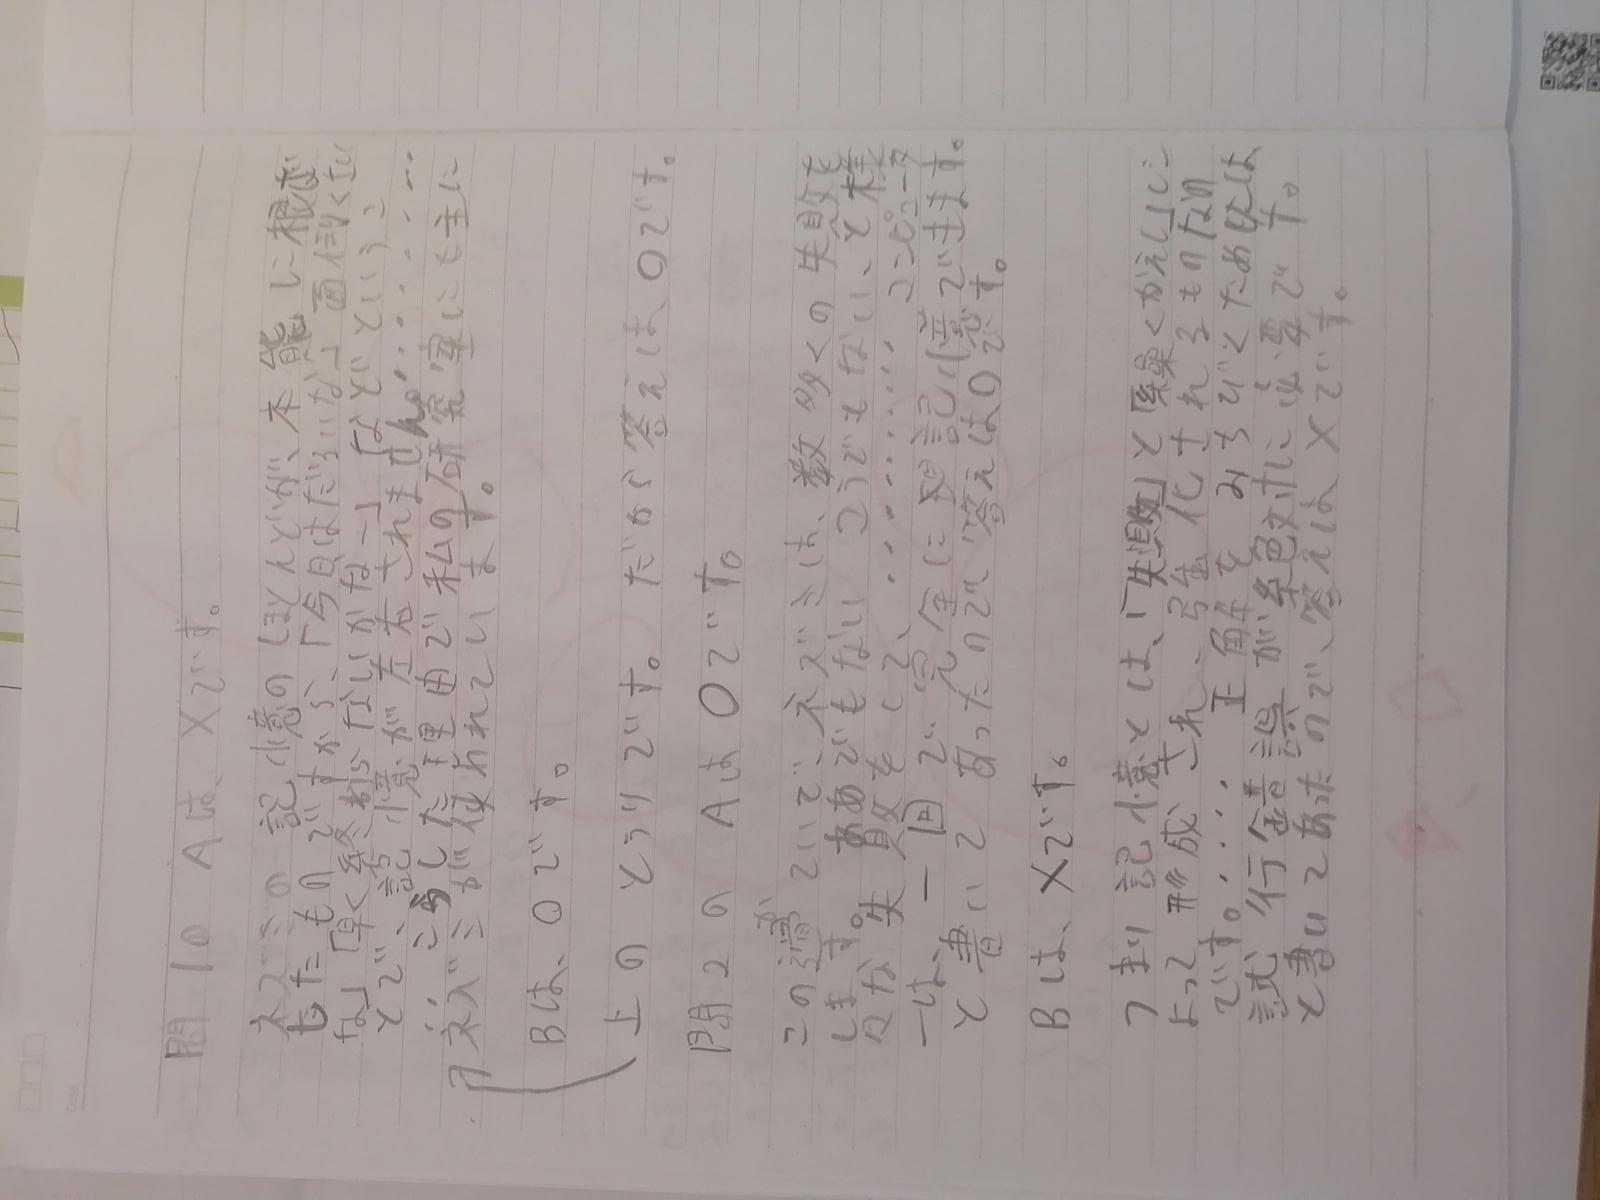 問1の Aは、Xです。
ネズミの記憶のほとんどが、本能に根ざ
したものですから、「今日はだるいな」「面倒くさい
な」「早く終わらないかなー」などというこ
とで、記憶が左右されません。…………
…、こうした理由で私の研究室にも主に
ネズミが使われています。
Bは、Oです。
上のとうりです。だから答えは、Oです。
問2の AはOです。
この過ていでネズミは、数多くの失敗を
します。ああでもないこうでもないと様
々な失敗をして、………… コンピュータ
ーは、一回で完全に 記憶できます。
と書いてあったので答えはOです。
Bは、Xです。
つまり記憶とは、「失敗」と「繰くりかえし」に
よって形成され、強化されるものなの
です。…… 正解をみちびくためには
試行錯誤が絶対に必要です。
と書いてあったので、答えはXです。